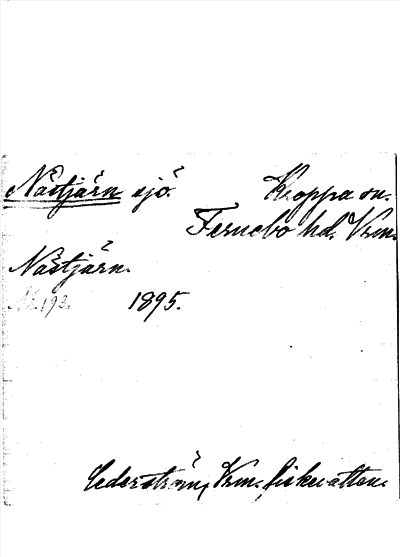 Nästjärn sjö. Kroppa sn.
Fernebo hd. Vrm.
Nästjärn.
193. 1895.
Cederström, Vrm. fiskevatten.